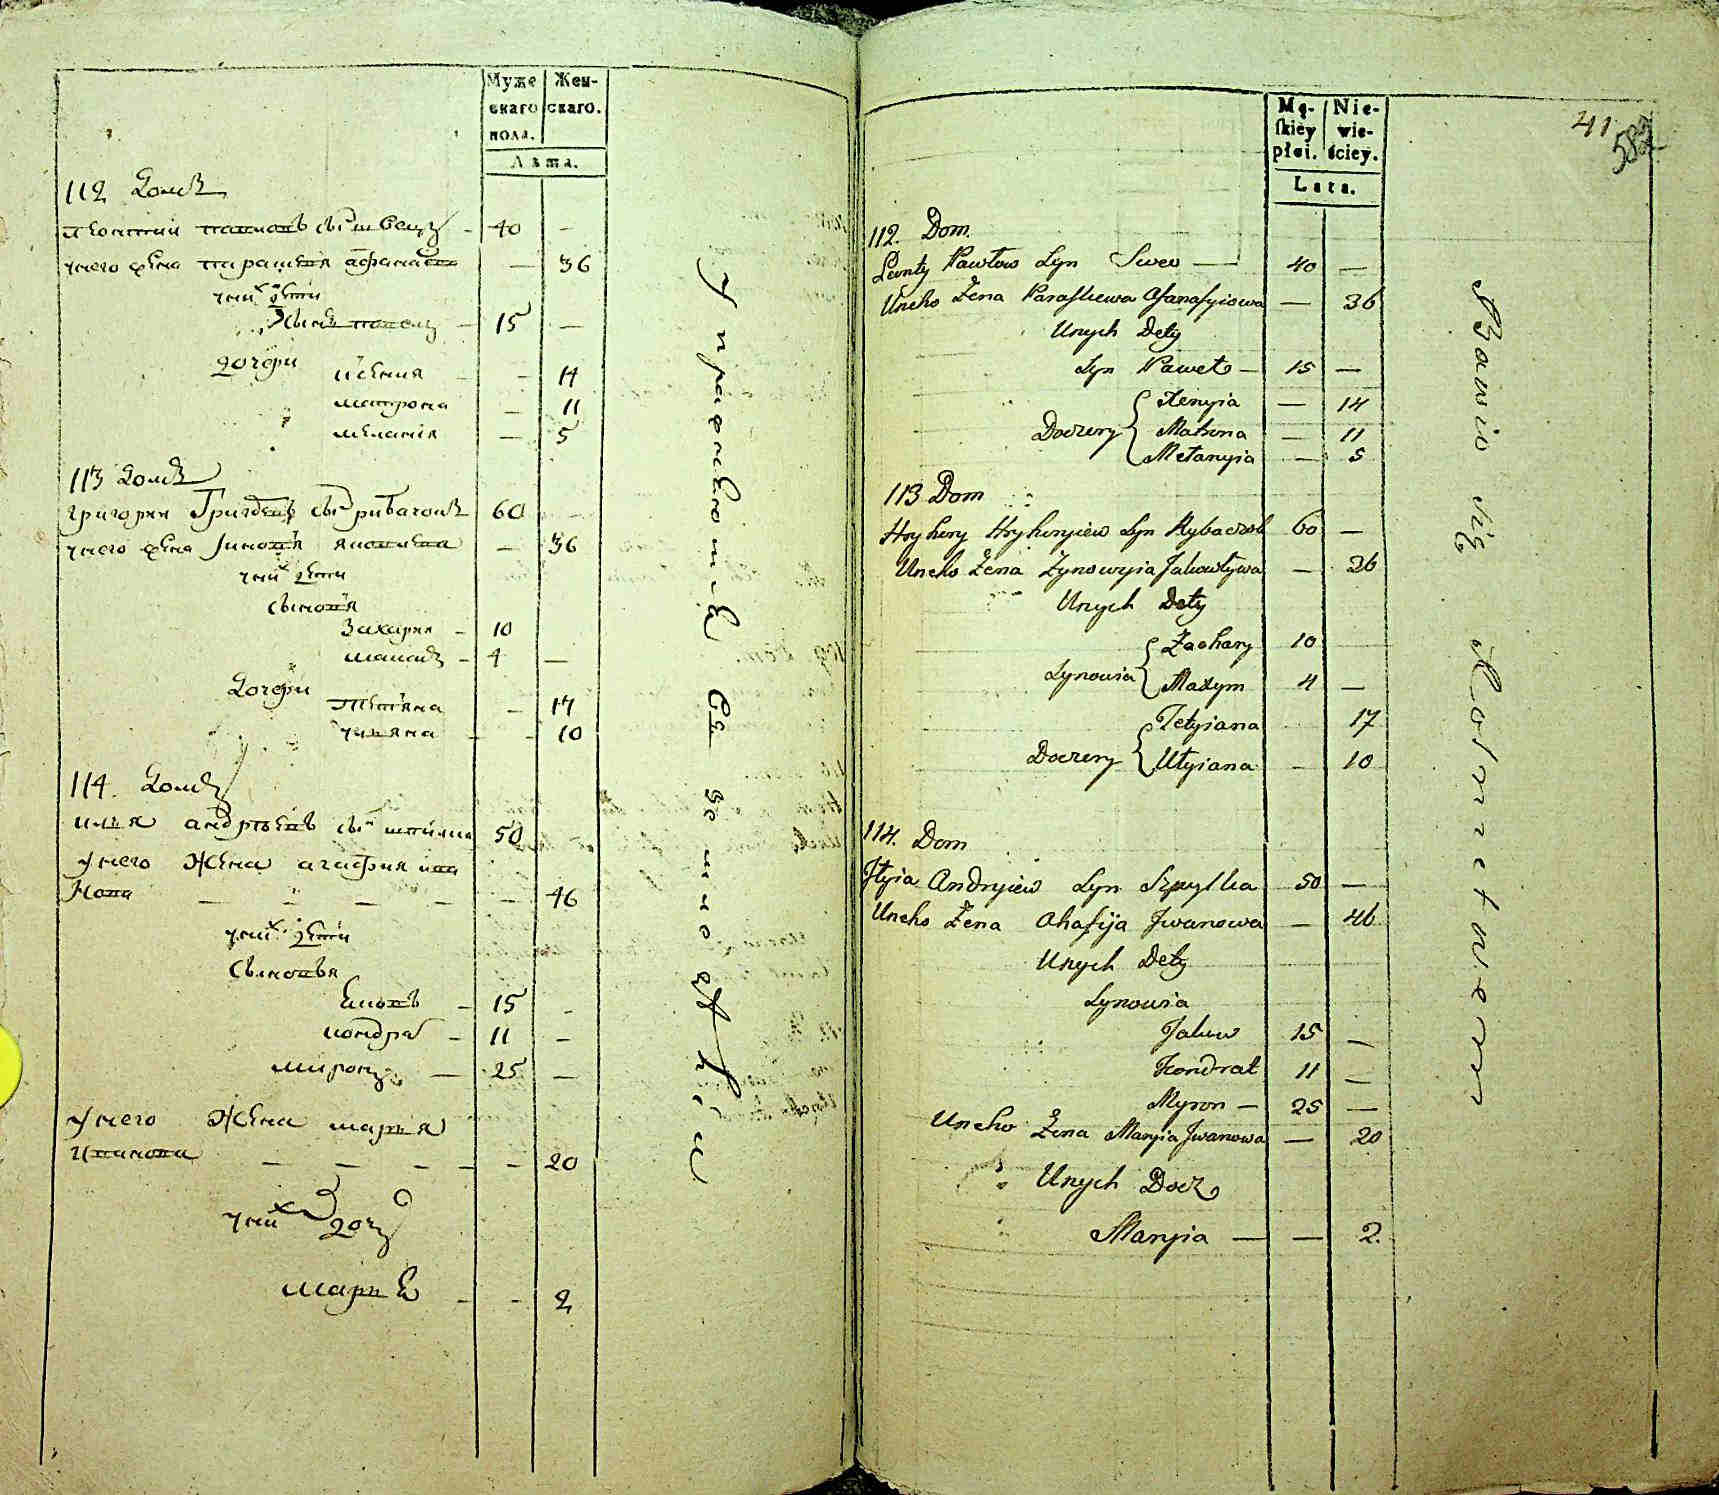 Муже
скаго
пола.
Жен-
скаго.
Лѣта.
112 Домъ
Леонтий Павловъ сынъ Швецъ - 40 -
у него жена Парасковия Афанасиева - 36
у них дѣти
Сынъ Павелъ - 15 -
дочери Ксения - 14
Матрона - 11
Мелания - 5
113 Домъ
Григорий Григориевъ сынъ Рибачокъ 60 -
у него жена Зиновия Яковлева - 36
у них дѣти
Сыновя
Захария - 10
Максимъ - 4 -
Дочери Тетияна - 17
Улияна - - 10
114. Домъ
Илия Андрѣевъ сынъ Шпилка 50
У него Жена Агафия Ива
нова - - - - - 46
у них дѣти
Сыновья
Яковъ - 15 -
Кондрат - 11 -
Миронъ - 25 -
У него Жена Мария
Иванова - - - - - 20
у них доч
Мария - - 2
Упражняется земледѣлием
41
582
Mę-
ſkiéy
płci.
Nie-
wie-
ściey.
Lata.
112. Dom.
Leonty Pawłow Syn Swec — 40 —
Uneho Żena Paraskewa Afanasyiowa — 36
Unych Dety
Syn Paweł — 15 —
Xenyia — 14
Doczery Matrona — 11
Mełanyia — 5
113 Dom
Hryhory Hryhoryiew Syn Rybaczok 60 —
Uneho Żena Zynowyia Jakowlywa — 36
Unych Dety
Zachary 10
Synowia
Maxym 4 —
Tetyiana 17
Doczery
Ulyiana — 10
114. Dom
Ilyia Andryiew Syn Szpylka 50 —
Uneho Żena Ahafija Jwanowa — 46
Unych Dety
Synowia
Jakow 15 —
Kondrat 11 —
Myron — 25 —
Uneho Żena Maryia Jwanowa — 20
Unych Docz
Maryia — — 2.
Bawio się Rolnictwem